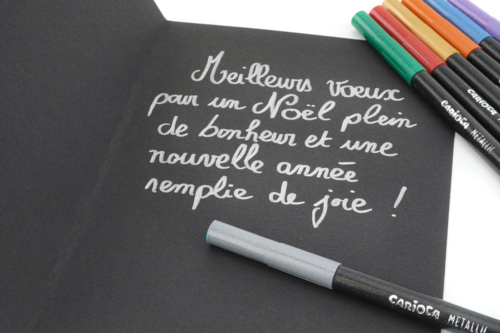 Meilleurs vœux
pour un Noël plein
de bonheur et une
nouvelle année
remplie de joie !
CARIOCA METALLIC
CARIOCA METALLIC
CARIOCA